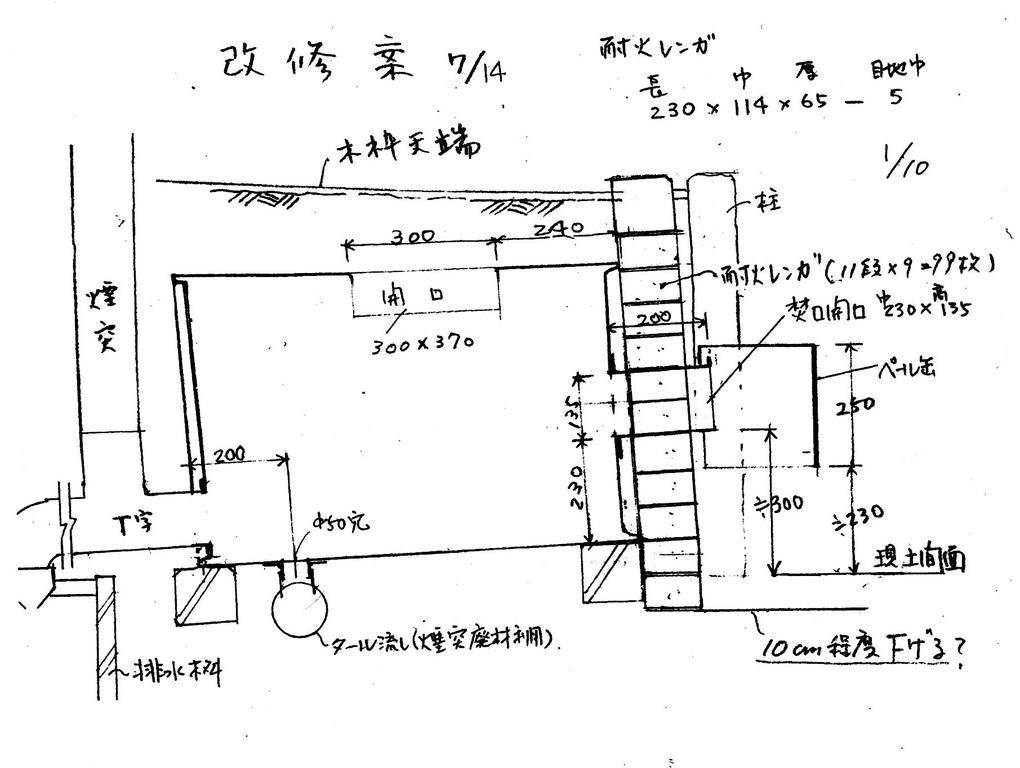 改修案 7/14
耐火レンガ
長 巾 厚 目地巾
230 × 114 × 65 — 5
1/10
木枠天端
柱
300
240
耐火レンガ(11段×9=99枚)
煙突
開口
300×370
200
焚口開口 巾230×高135
ペール缶
250
135
200
230
≒300
≒230
T字
φ50穴
現土間面
タール流し(煙突廃材利用)
10cm程度下げる?
排水桝